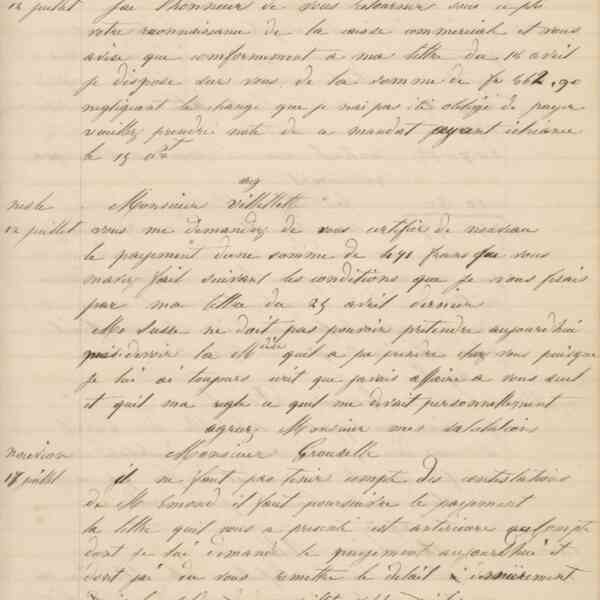 12 juillet j'ai l'honneur de vous retourner sous ce pli
votre reconnaissance de la caisse commercial et vous
avise que conformement a ma lettre du 18 avril
je dispose sur vous de la somme de fr 662.90
negligeant le change que je n'ai pas été obligé de payer
veuillez prendre note de ce mandat ayant échéance
le 15 aout
agr
nesle Monsieur Villette
12 juillet vous me demandez de vous certifier de nouveau
le payement d'une somme de francs que vous
mavez fait suivant les conditions que je vous fesais
par ma lettre du 25 avril dernier
Mr Susse ne doit pas pouvoir pretendre aujourdhui
devoir la Mdise quil a pu prendre chez vous puisque
je lui ai toujours ecrit que javais affaire a vous seul
et quil ma regle ce quil me devait personnellement
agreez Monsieur mes salutations
nouvion Monsieur Grouselle
18 juillet il ne faut pas tenir compte des contestations
de M Emond il faut poursuivre le payement
la lettre quil vous a presenté est anterieure au compte
dont je lui demande le payement aujourdhui et
dont jai du vous remettre le detail dernierement